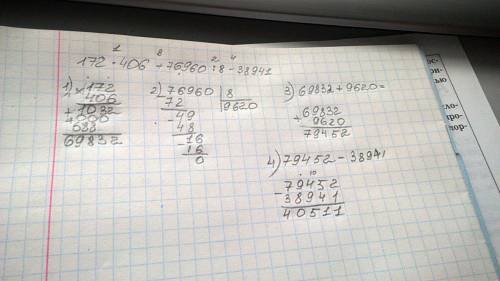 1 3 2 4
172 · 406 + 76960 : 8 - 38941
1) × 172
406
+ 1032
000
688
69832
2) 76960 | 8
72 | 9620
- 49
48
- 16
16
0
3) 69832 + 9620 =
+ 69832
9620
79452
4) 79452 - 38941
10
- 79452
38941
40511